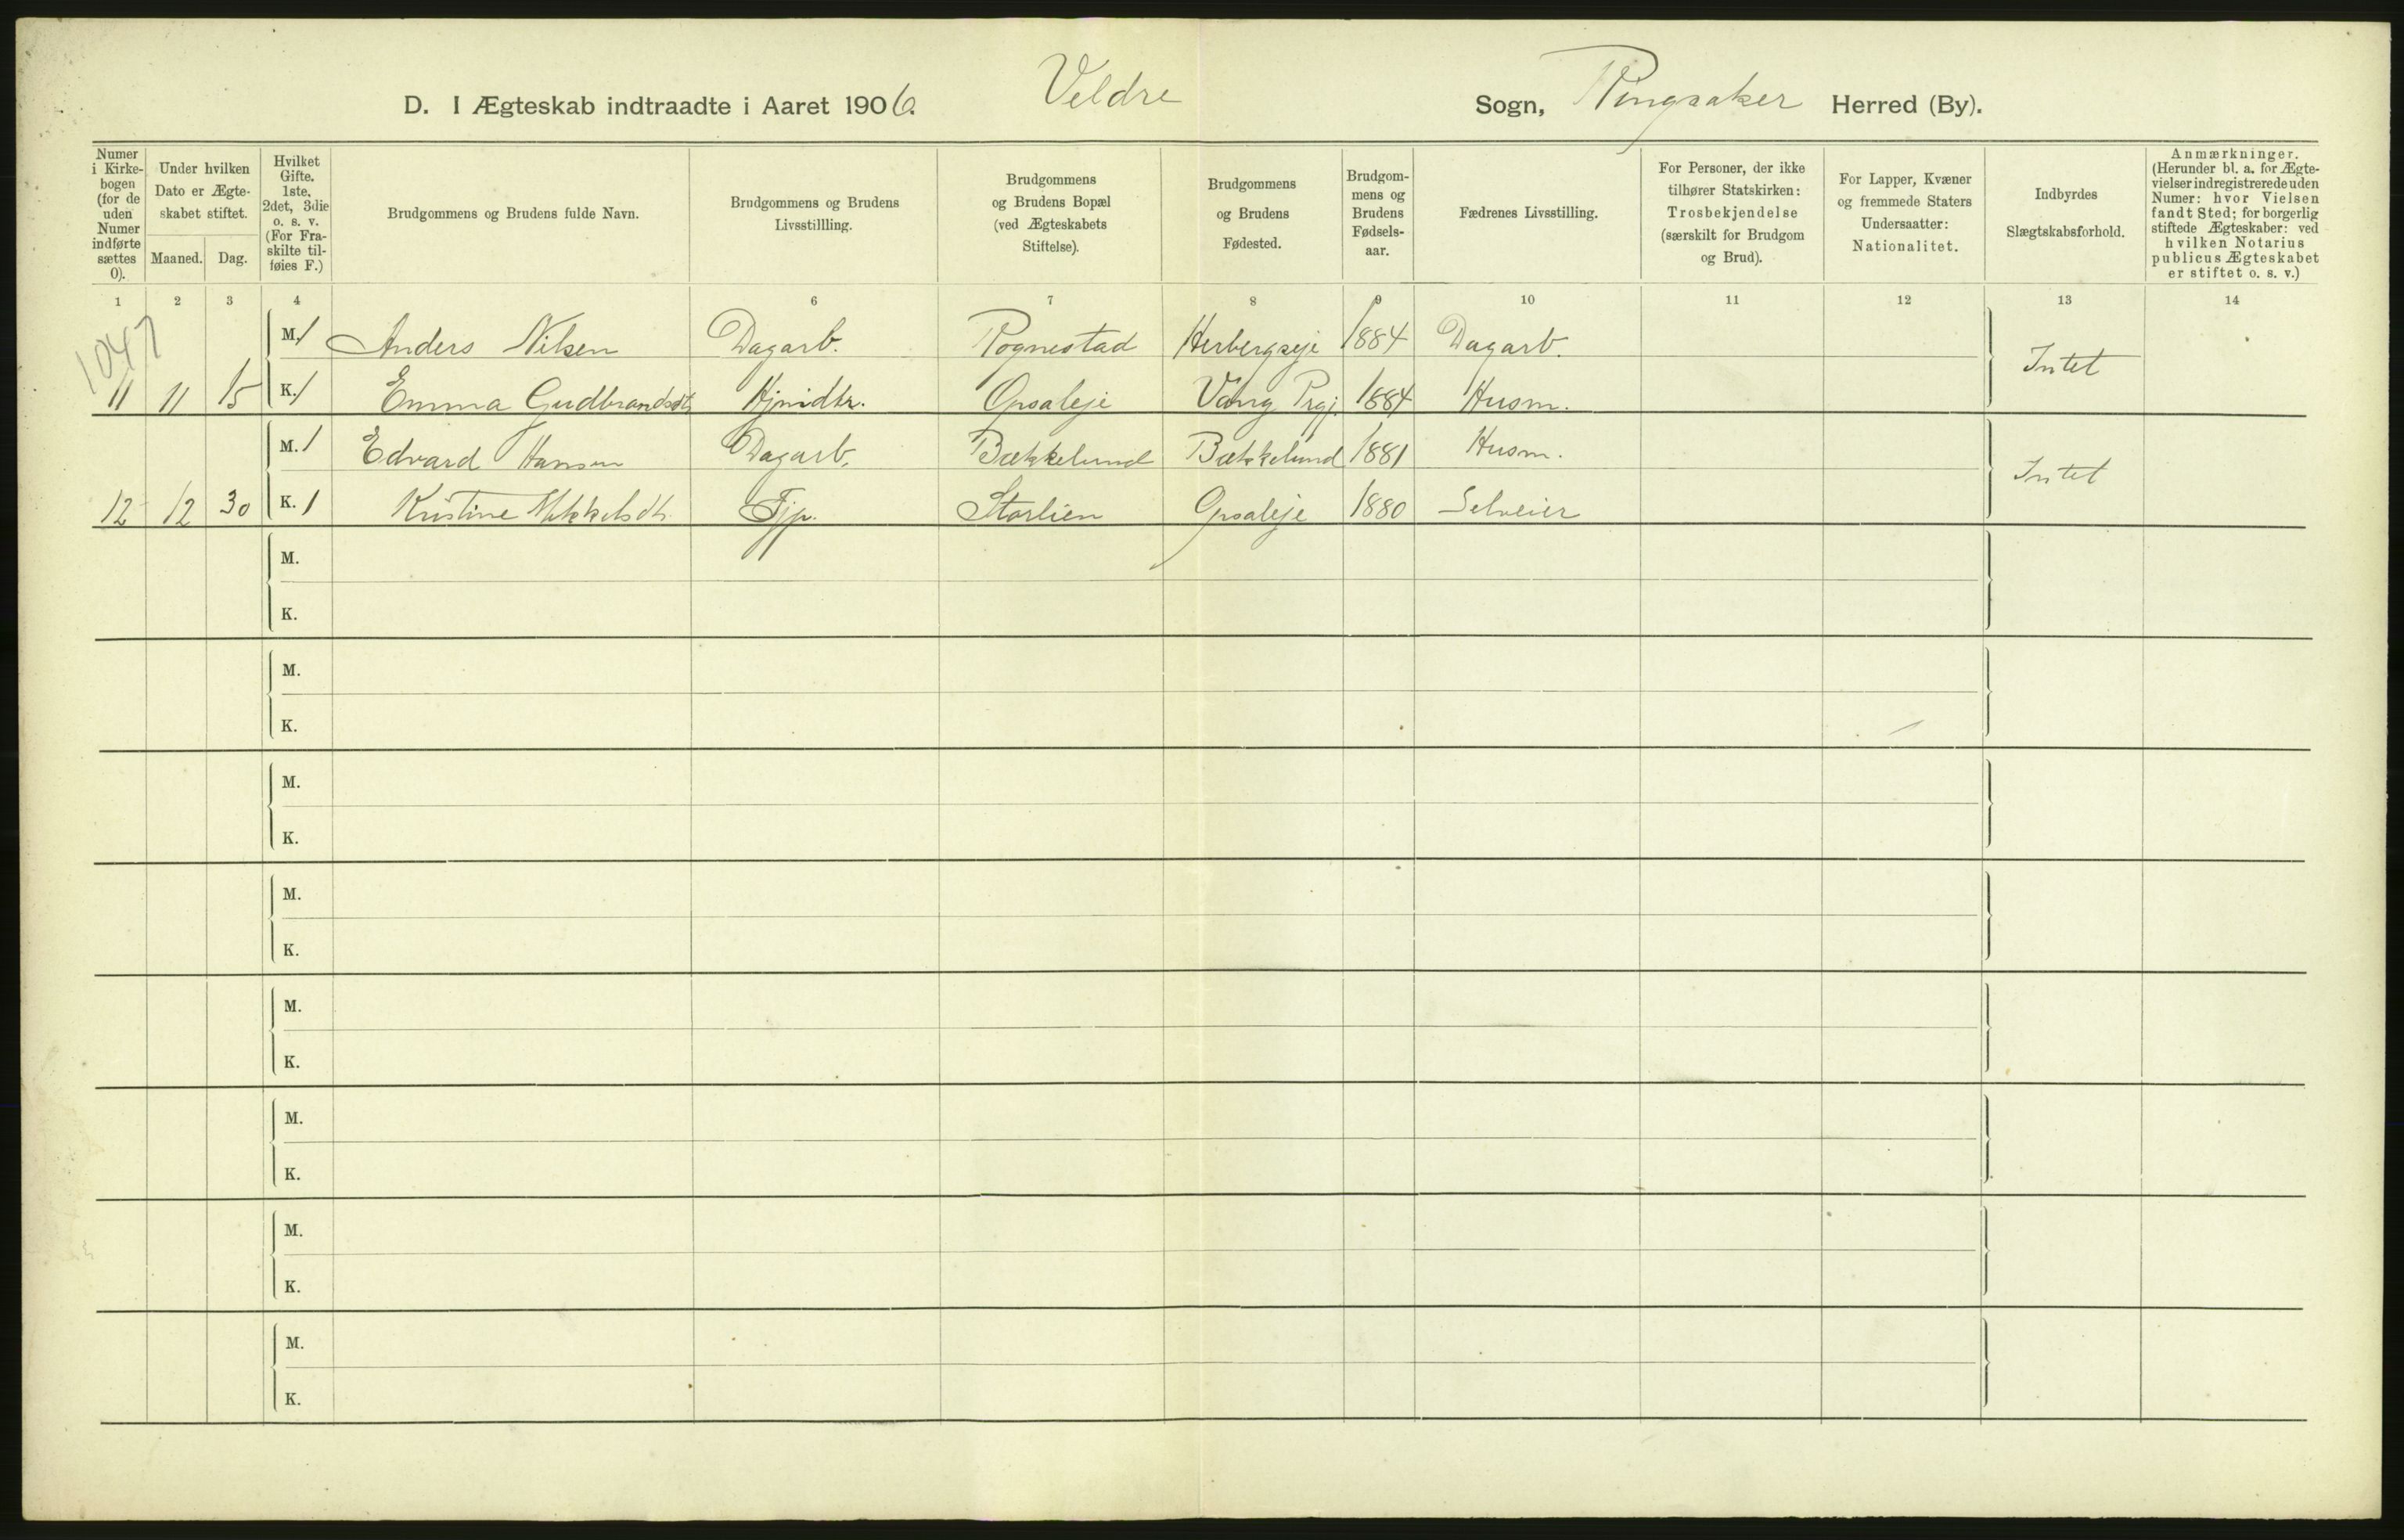 D. I Ægteskab indtraadte i Aaret 1906. Veldre Sogn, Ringsaker Herred (By).
Numer i Kirkebogen (for de uden Numer indførte sættes 0).
Under hvilken Dato er Ægteskabet stiftet.
Maaned. Dag.
Hvilket Gifte. 1ste, 2det, 3die o. s. v. (For Fraskilte tilføies F.)
Brudgommens og Brudens fulde Navn.
Brudgommens og Brudens Livsstillling.
Brudgommens og Brudens Bopæl (ved Ægteskabets Stiftelse).
Brudgommens og Brudens Fødested.
Brudgommens og Brudens Fødselsaar.
Fædrenes Livsstilling.
For Personer, der ikke tilhører Statskirken: Trosbekjendelse (særskilt for Brudgom og Brud).
For Lapper, Kvæner og fremmede Staters Undersaatter: Nationalitet.
Indbyrdes Slægtskabsforhold.
Anmærkninger. (Herunder bl. a. for Ægtevielser indregistrerede uden Numer: hvor Vielsen fandt Sted; for borgerlig stiftede Ægteskaber: ved hvilken Notarius publicus Ægteskabet er stiftet o. s. v.)
1 2 3 4 6 7 8 9 10 11 12 13 14
1047
M. 1 Anders Nilsen Dagarb. Pognestad Herbergseje 1884 Dagarb.
Intet
11 11 15 K. 1 Emma Gudbrandsdt Hjmdtr. Opsaleje Vang Prgj. 1884 Husm.
M. 1 Edvard Hansen Dagarb. Bækkelund Bækkelund 1881 Husm.
Intet
12 12 30 K. 1 Kristine Mikkelsdt. Tjp. Storlien Opsaleje 1880 Selveier
M.
K.
M.
K.
M.
K.
M.
K.
M.
K.
M.
K.
M.
K.
M.
K.